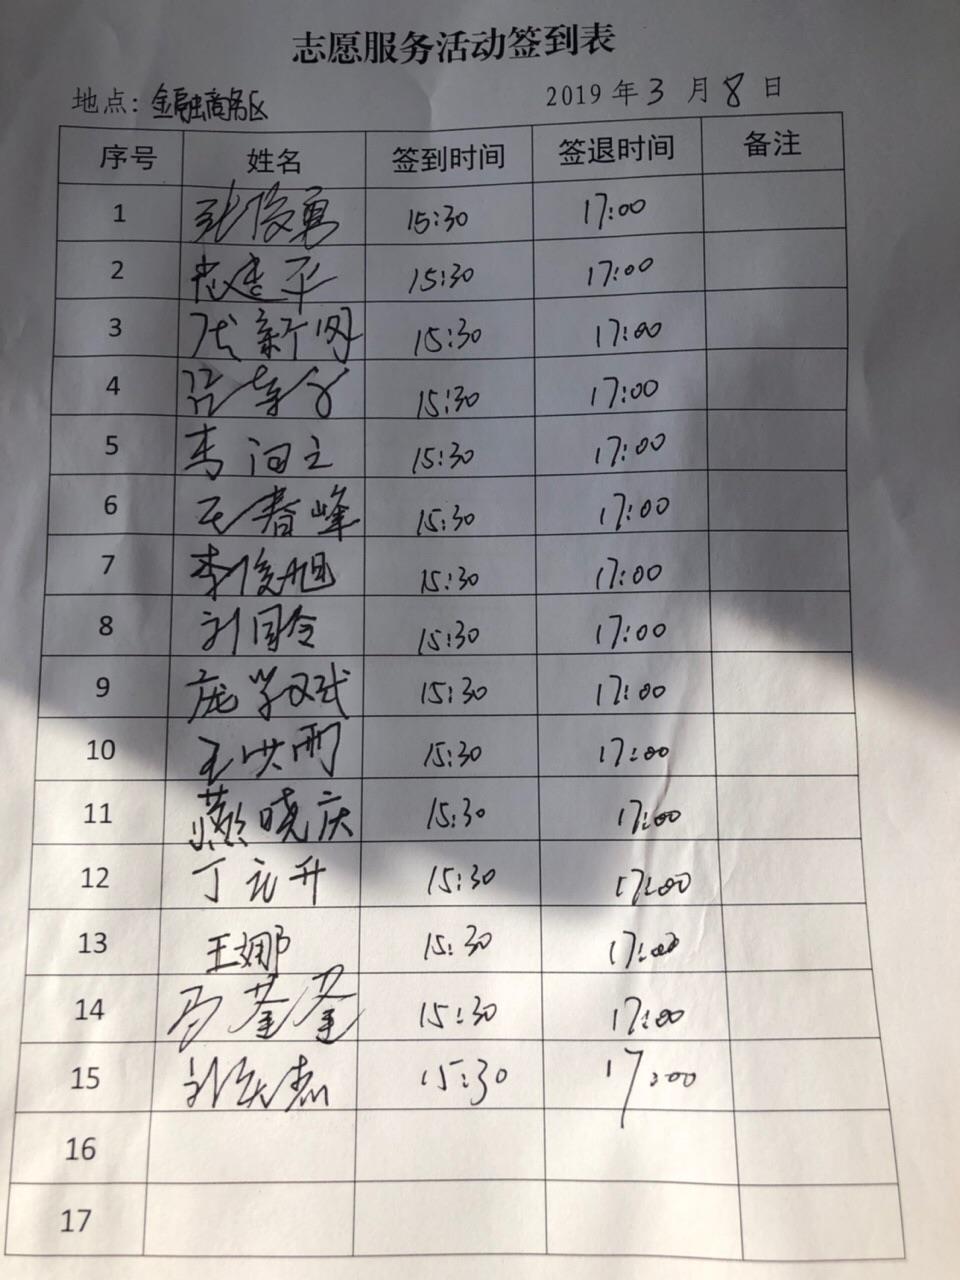 志愿服务活动签到表
地点: 金融商务区 2019 年 3 月 8 日
序号 姓名 签到时间 签退时间 备注
1 张俊勇 15:30 17:00
2 15:30 17:00
3 15:30 17:00
4 15:30 17:00
5 15:30 17:00
6 王春峰 15:30 17:00
7 李俊旭 15:30 17:00
8 刘国令 15:30 17:00
9 庞学斌 15:30 17:00
10 王洪雨 15:30 17:00
11 燕晓庆 15:30 17:00
12 丁元升 15:30 17:00
13 王娜 15:30 17:00
14 15:30 17:00
15 15:30 17:00
16
17